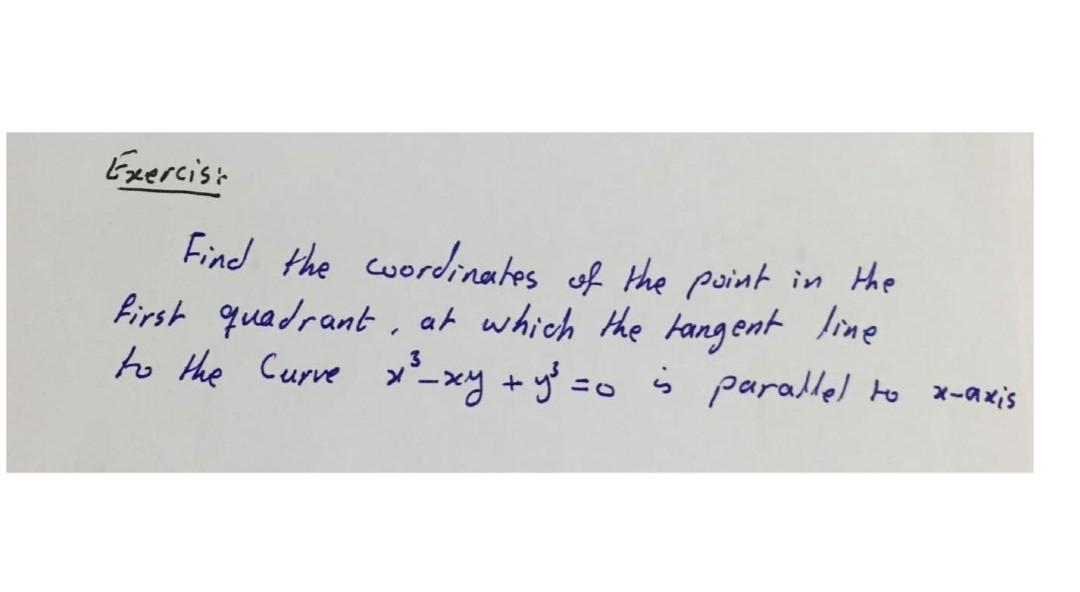 Exercise:
Find the coordinates of the point in the
first quadrant, at which the tangent line
to the Curve x³-xy+y³=0 is parallel to x-axis